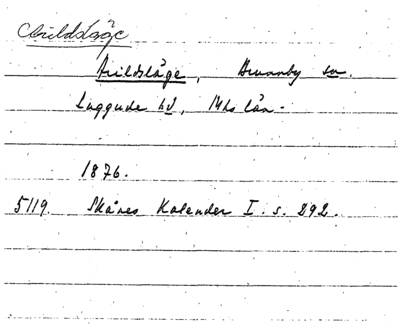 Arildsläge
Arildsläge, Brunnby sn.
Luggude hd, Mhs län.
1876.
5119. Skånes Kalender I. s. 292.